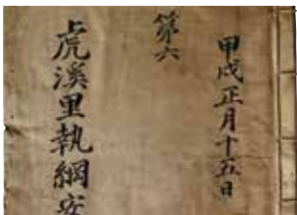 甲戌正月十五日
第六
虎溪里執綱安